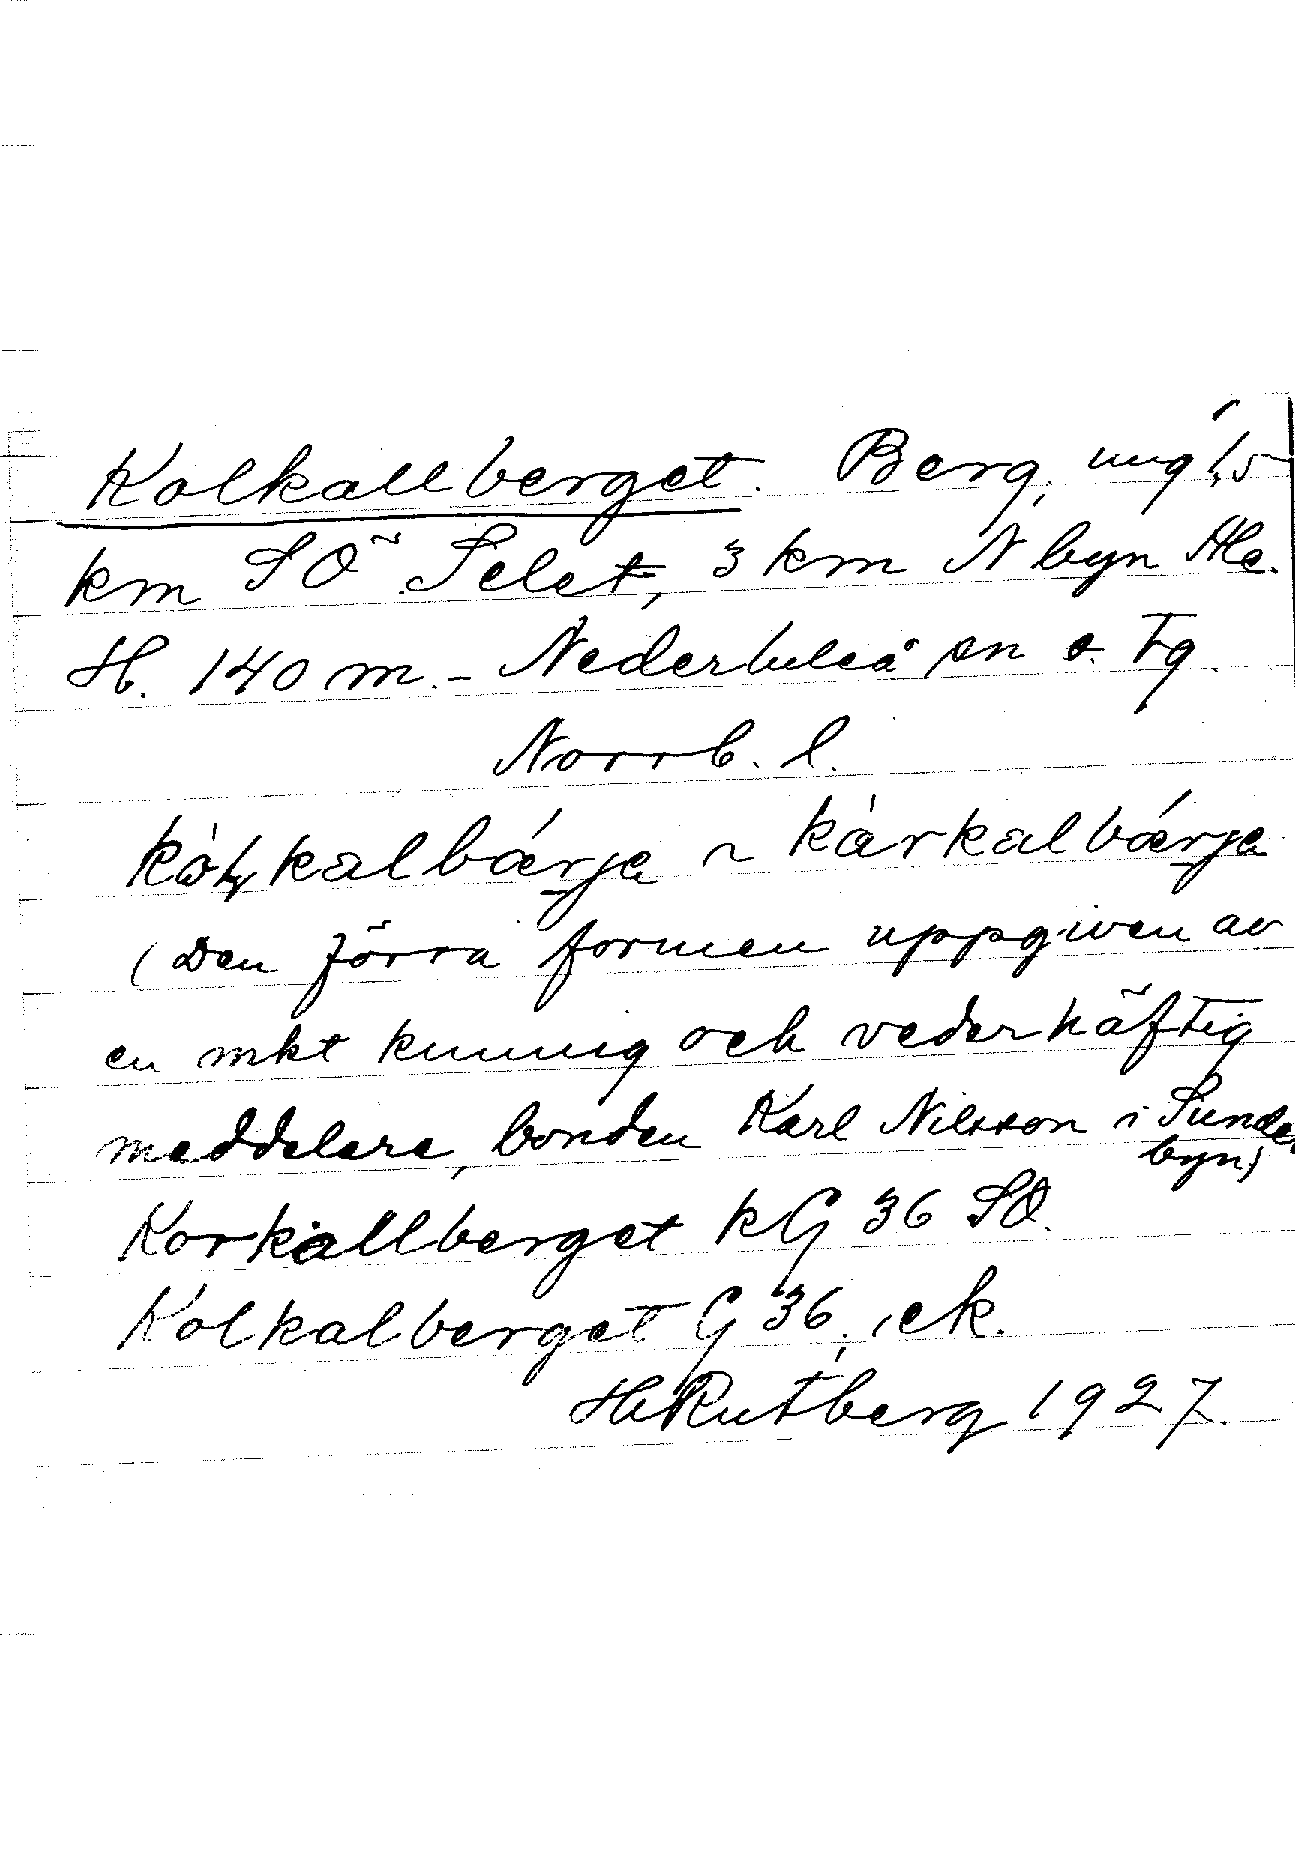 Kolkallberget. Berg, ung 1,5
km SÖ Selet, 3 km N byn Ale.
H. 140 m. - Nederluleå sn o. tg
Norrb. l.
kòłkalbárja ~ kàrkalbárja
(Den förra formen uppgiven av
en mkt kunnig och vederhäftig
meddelare, bonden Karl Nilsson i Sunder
byn)
Korkallberget kG 36 SO.
Kolkalberget G 36, ek.
H Rutberg 1927.